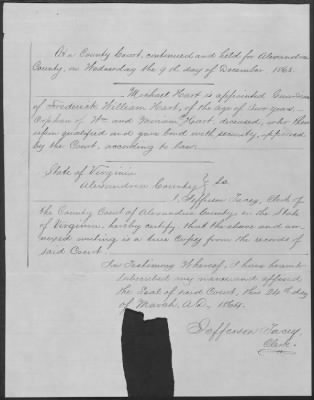 At a County Court, continued and held for Alexandria
County, on Wednesday the 9th day of December 1863.
Michael Hart is appointed Guardian
of Frederick William Hart, of the age of two years,
Orphan of Wm and Miriam Hart, deceased, who thereupon
qualified and gave bond with security, approved
by the Court, according to law.
State of Virginia
Alexandria County } Ss
I, Jefferson Tacey, Clerk of
the County Court of Alexandria County, in the State
of Virginia, hereby certify, that the above and annexed
writing is a true Copy from the records of
said Court.
In Testimony Whereof, I have hereunto
subscribed my name and affixed
the Seal of said Court, this 24th day
of March, A.D. 1864.
Jefferson Tacey
Clerk.